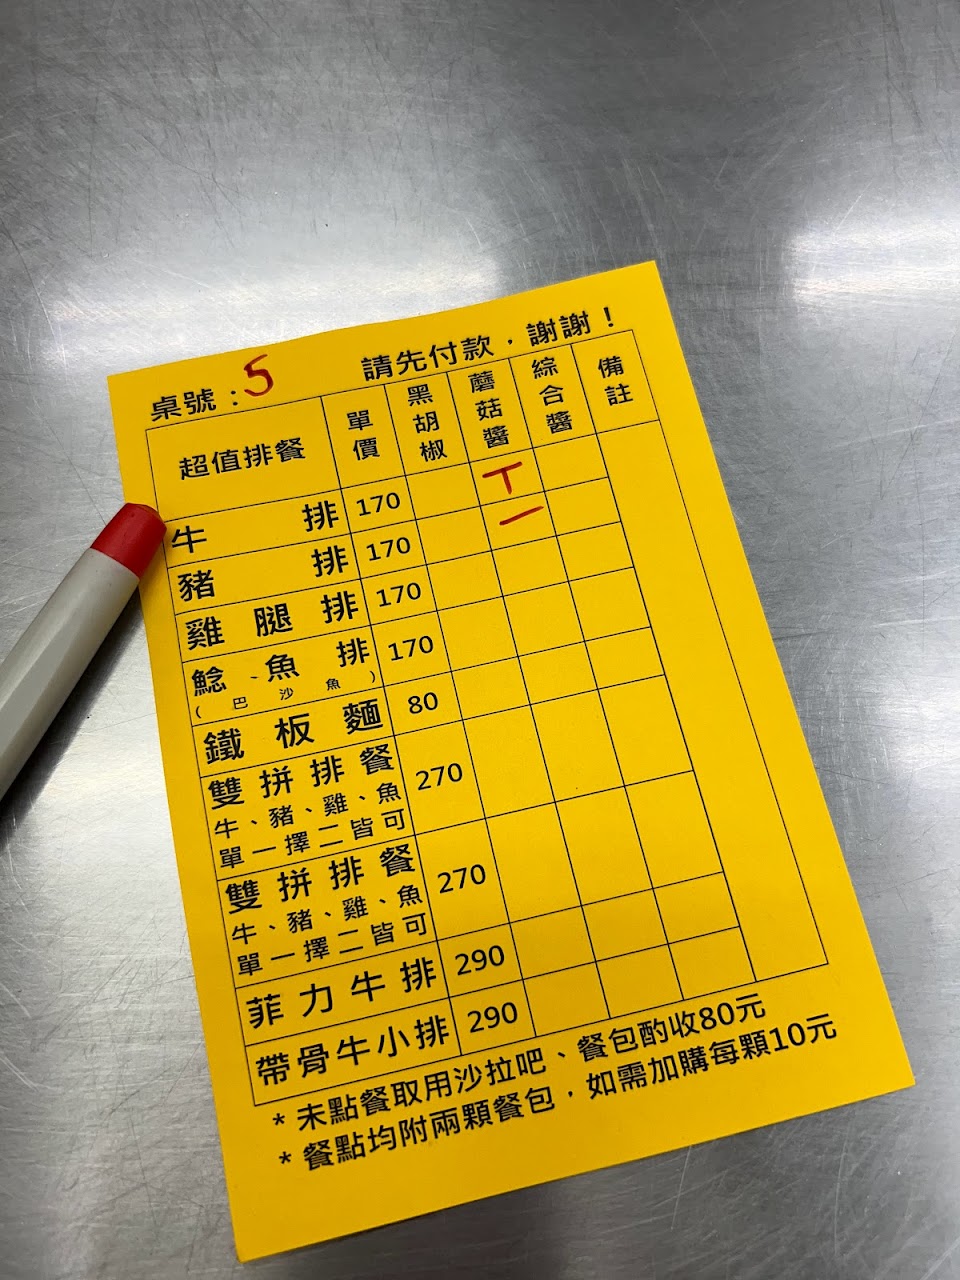 桌號：5 請先付款，謝謝！
超值排餐 單價 黑胡椒 蘑菇醬 綜合醬 備註
牛排 170 丅
豬排 170 一
雞腿排 170
鯰魚排 170
(巴沙魚)
鐵板麵 80
雙拼排餐 270
牛、豬、雞、魚
單一擇二皆可
雙拼排餐 270
牛、豬、雞、魚
單一擇二皆可
菲力牛排 290
帶骨牛小排 290
* 未點餐取用沙拉吧、餐包酌收80元
* 餐點均附兩顆餐包，如需加購每顆10元